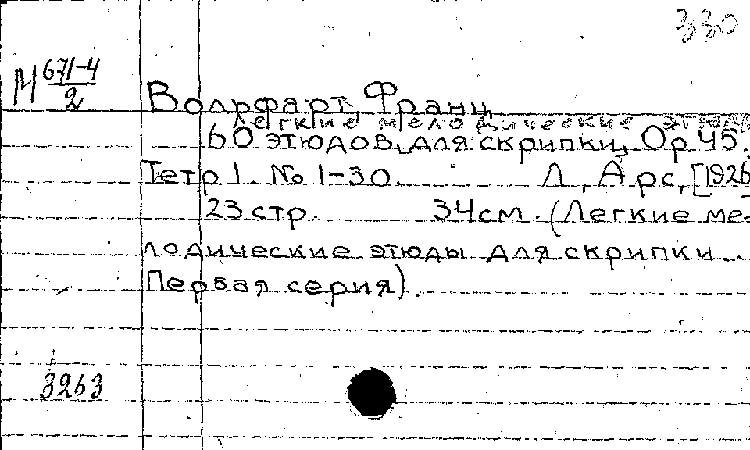 330
М 671-4
2
Вольфарт, Франц
Легкие мелодические этюды
60 этюдов для скрипки, Ор. 45.
Тетр 1. № 1-30. Л, Арс, [1926]
23 стр. 34 см. (Легкие ме-
лодические этюды для скрипки.
Первая серия).
3263